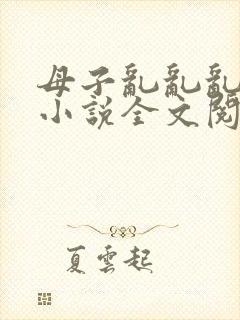 母子亂亂亂
小說全文閱
夏雲起